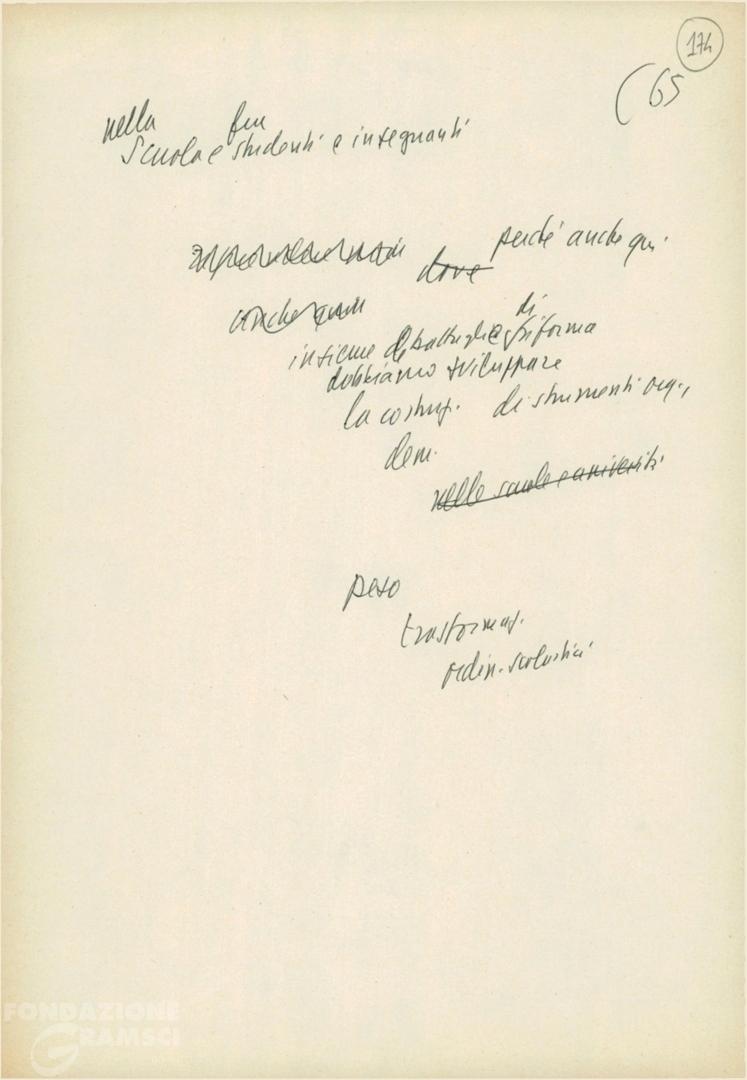 174
(65
nella fra
Scuola e studenti e insegnanti
dove perché anche qui
anche qui
di
insieme battaglie riforma
dobbiamo sviluppare
la costruz. di strumenti org.,
dem.
nelle scuole e università
peso
trasformaz.
ordin. scolastici
FONDAZIONE
GRAMSCI